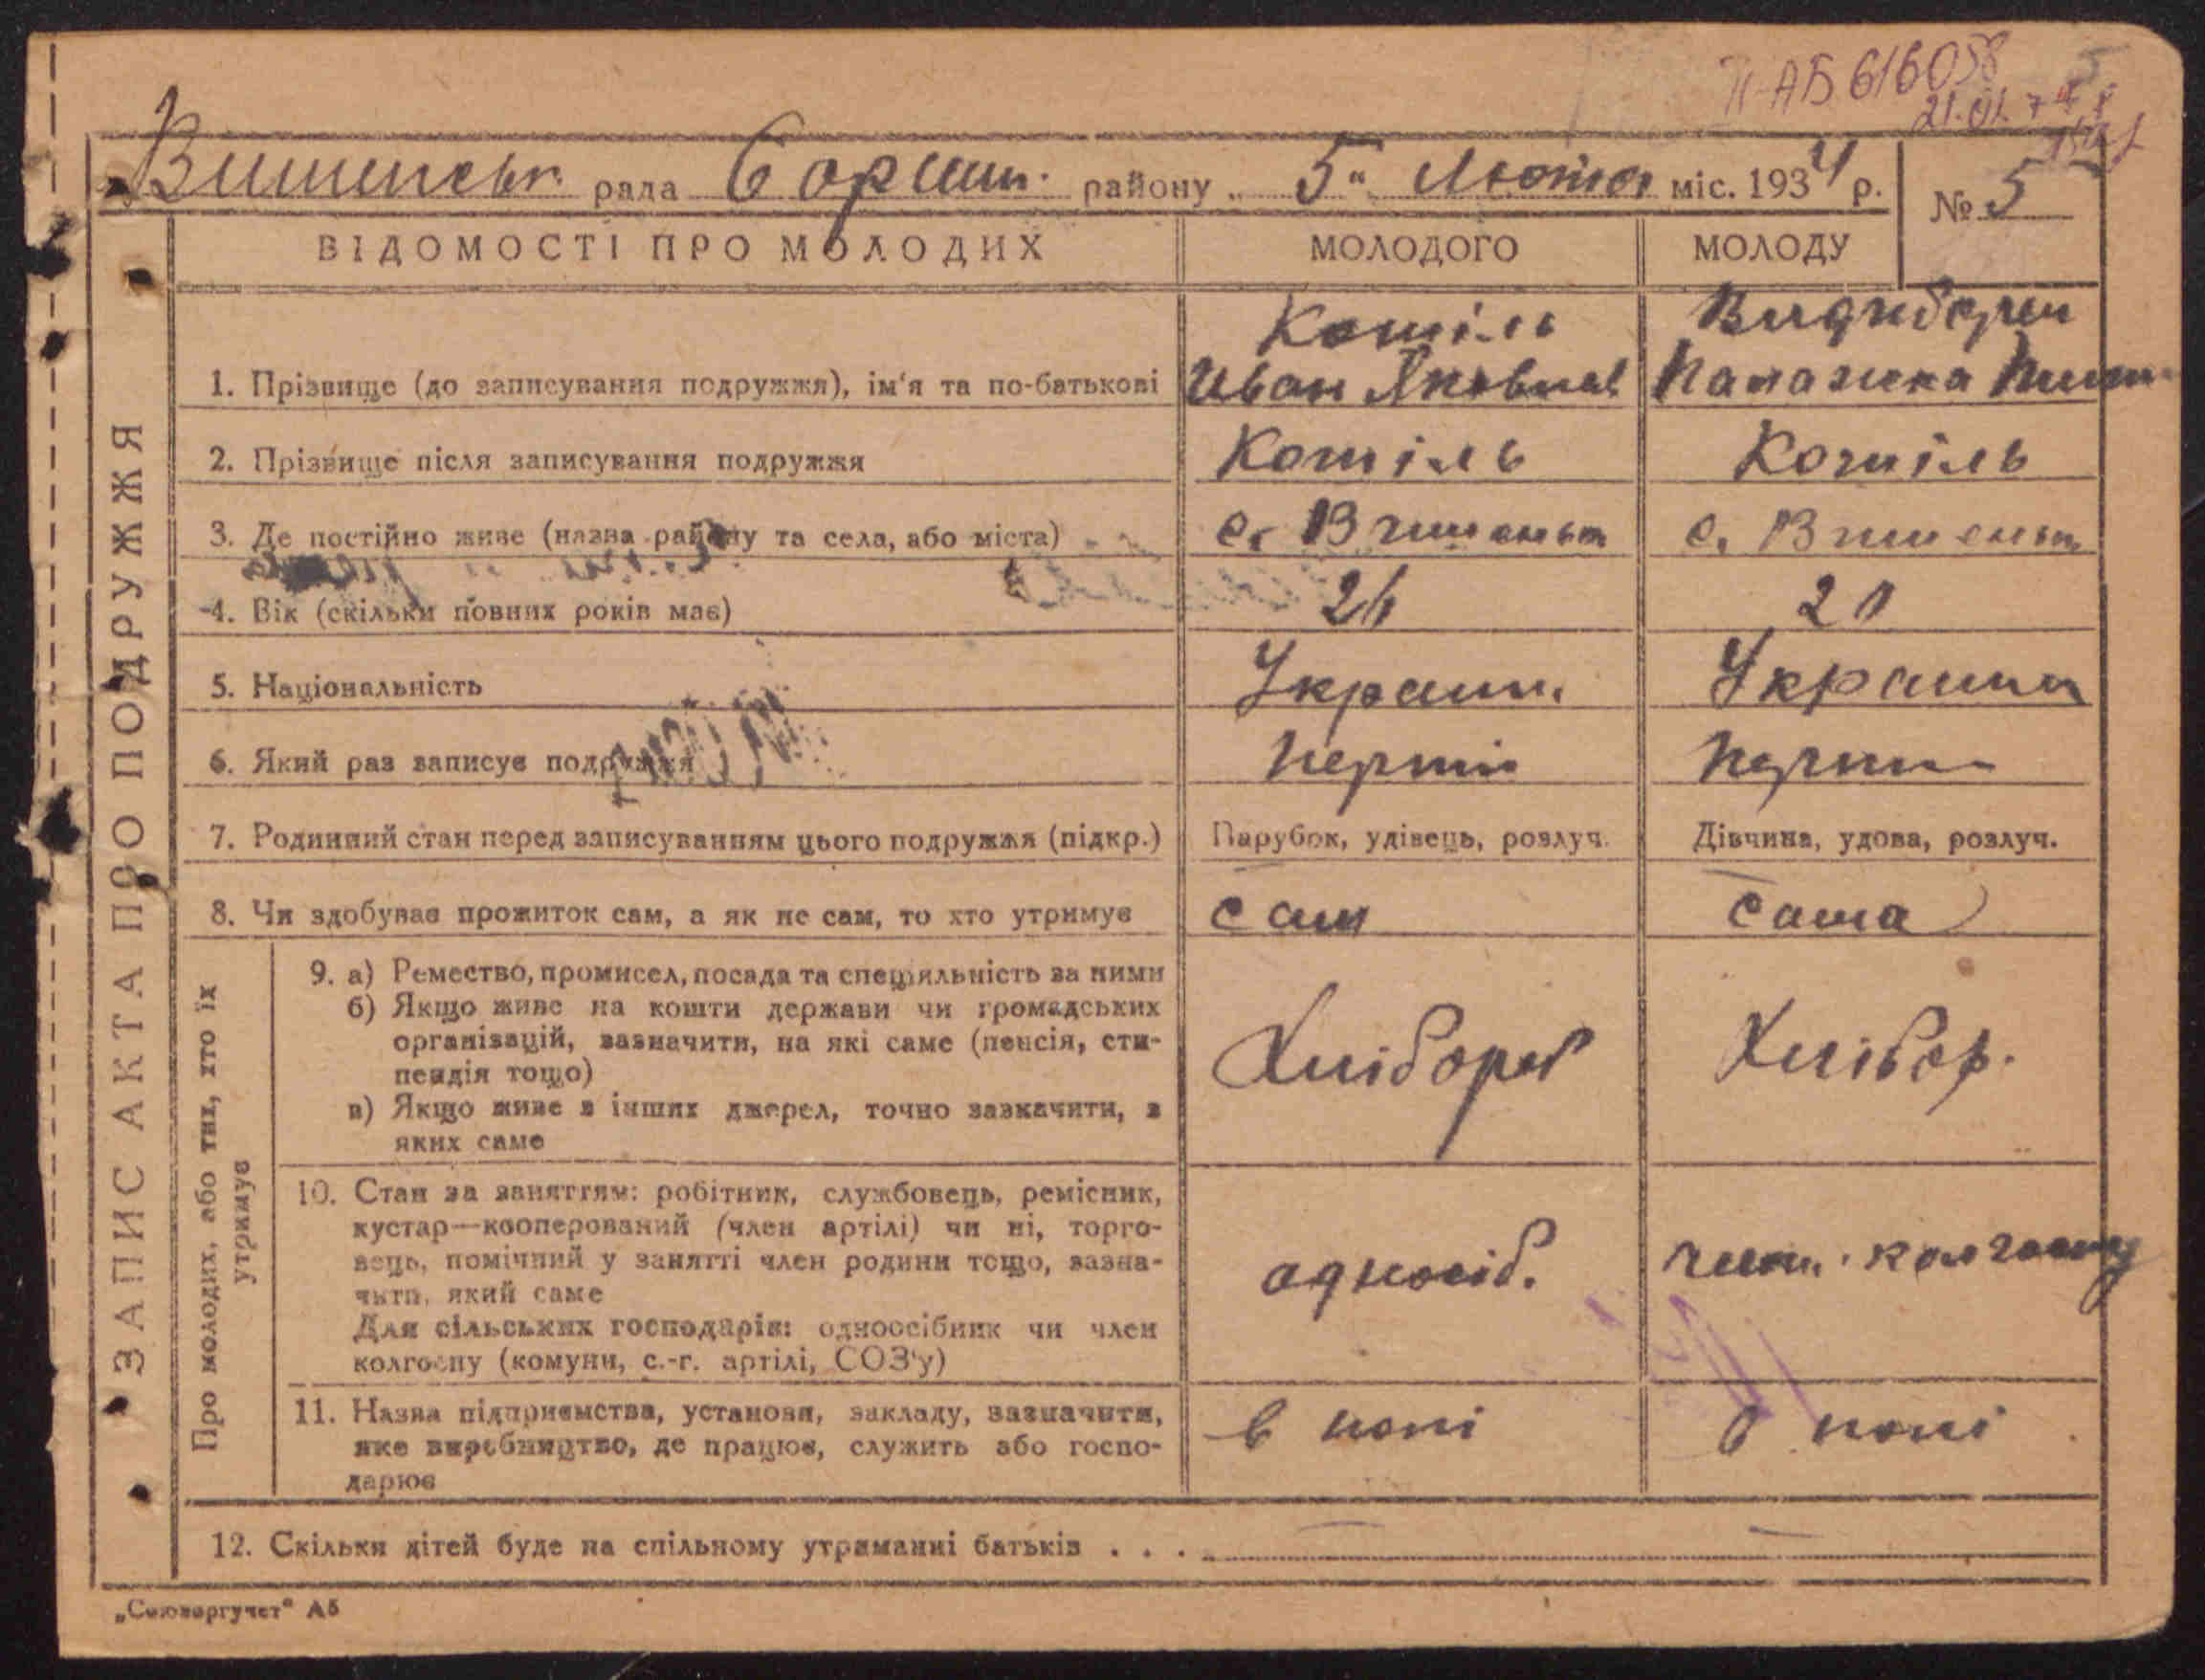 П-АБ 616038
21.01.74
рада району „ 5 " Лютого міс. 1934 р.
№ 5
ВІДОМОСТІ ПРО МОЛОДИХ МОЛОДОГО МОЛОДУ
ЗАПИС АКТА ПРО ПОДРУЖЖЯ
Котіль
1. Прізвище (до записування подружжя), ім'я та по-батькові Иван Яковлев
2. Прізвище після записування подружжя Котіль Котіль
3. Де постійно живе (назва району та села, або міста) с. с.
4. Вік (скільки повних років має)
5. Національність Украин. Украин
6. Який раз записує подружжя
7. Родинний стан перед записуванням цього подружжя (підкр.) Парубок, удівець, розлуч. Дівчина, удова, розлуч.
8. Чи здобуває прожиток сам, а як не сам, то хто утримує сам сама
Про молодих, або тих, хто їх
утримує
9. а) Ремество, промисел, посада та спеціяльність за ними
б) Якщо живе на кошти держави чи громадських
організацій, зазначити, на які саме (пенсія, сти-
пендія тощо)
в) Якщо живе з інших джерел, точно зазначити, з
яких саме
Хлібороб Хлібор.
10. Стан за заняттям: робітник, службовець, ремісник,
кустар—кооперований (член артілі) чи ні, торго-
вець, помічний у занятті член родини тощо, зазна-
чити, який саме
Для сільських господарів: одноосібник чи член
колгоспу (комуни, с.-г. артілі, СОЗ'у)
одноосіб. член. колгоспу
11. Назва підприємства, установи, закладу, зазначити,
яке виробництво, де працює, служить або госпо-
дарює
в полі в полі
12. Скільки дітей буде на спільному утриманні батьків . . .
„Союзоргучет" А5